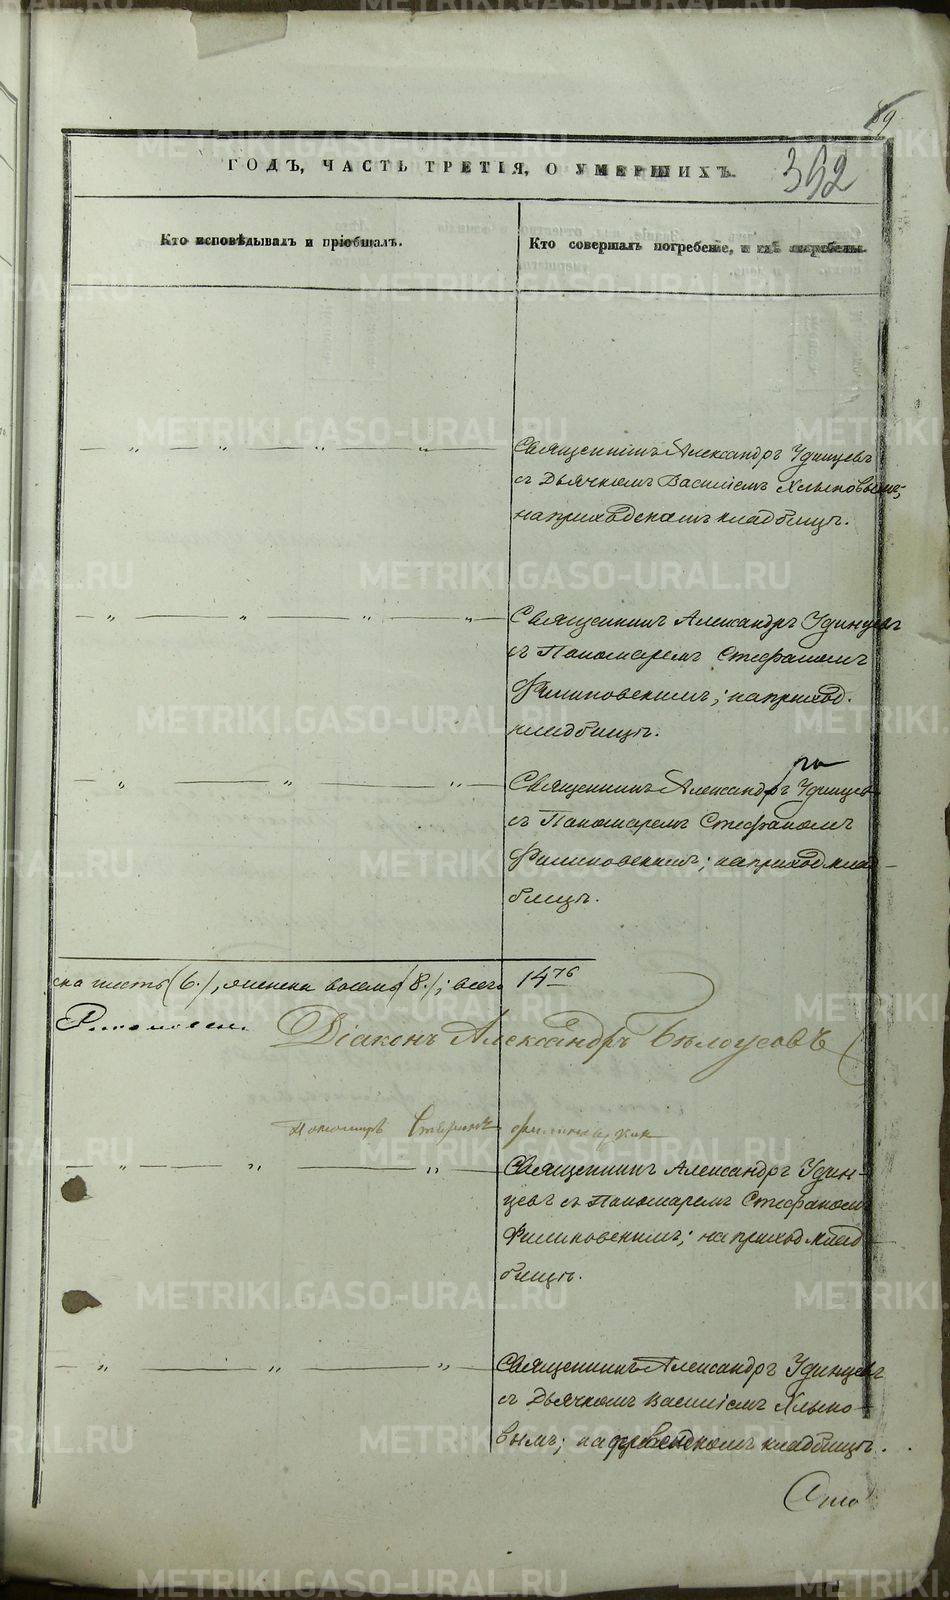 89
392
ГОДЪ, ЧАСТЬ ТРЕТІЯ, О УМЕРШИХЪ.
Кто исповѣдывалъ и пріобщалъ.
Кто совершалъ погребеніе, и гдѣ погребены.
— „ — „ — „ — „ —
Священникъ Александръ Удинцевъ
съ Дьячкомъ Василіемъ Хлыновымъ;
на приходскомъ кладбищѣ.
— „ — „ — „ — „ —
Священникъ Александръ Удинцевъ
съ Пономаремъ Стефаномъ
Филиповскимъ; на приход.
кладбищѣ.
— „ — „ — „ —
Священникъ Александръ Удинцевъ
съ Пономаремъ Стефаномъ
Филиповскимъ; на приход клад-
бищѣ.
ска шесть (6.), женска восемь (8.); всего 14
Діаконъ Александръ Бѣлоусовъ
Пономарь Стефанъ
— „ — „ — „ —
Священникъ Александръ Удин-
цевъ съ Пономаремъ Стефаномъ
Филиповскимъ; на приход клад-
бищѣ.
— „ — „ — „ —
Священникъ Александръ Удинцевъ
съ Дьячкомъ Василіемъ Хлыно-
вымъ; на кладбищѣ.
METRIKI.GASO-URAL.RU